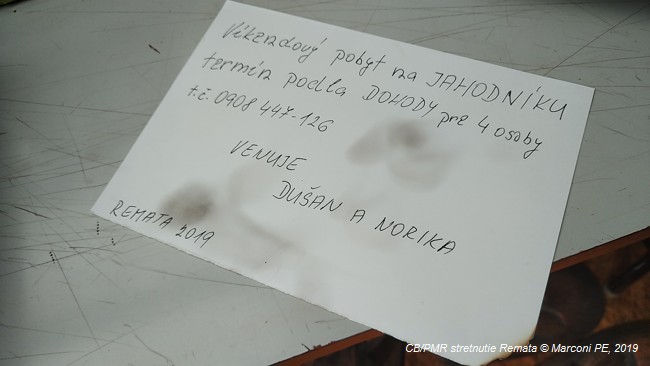 Víkendový pobyt na JAHODNÍKU
termín podla DOHODY pre 4 osoby
t.č. 0908 447-126
VENUJE
DUŠAN A NORIKA
REMATA 2019
CB/PMR stretnutie Remata © Marconi PE, 2019